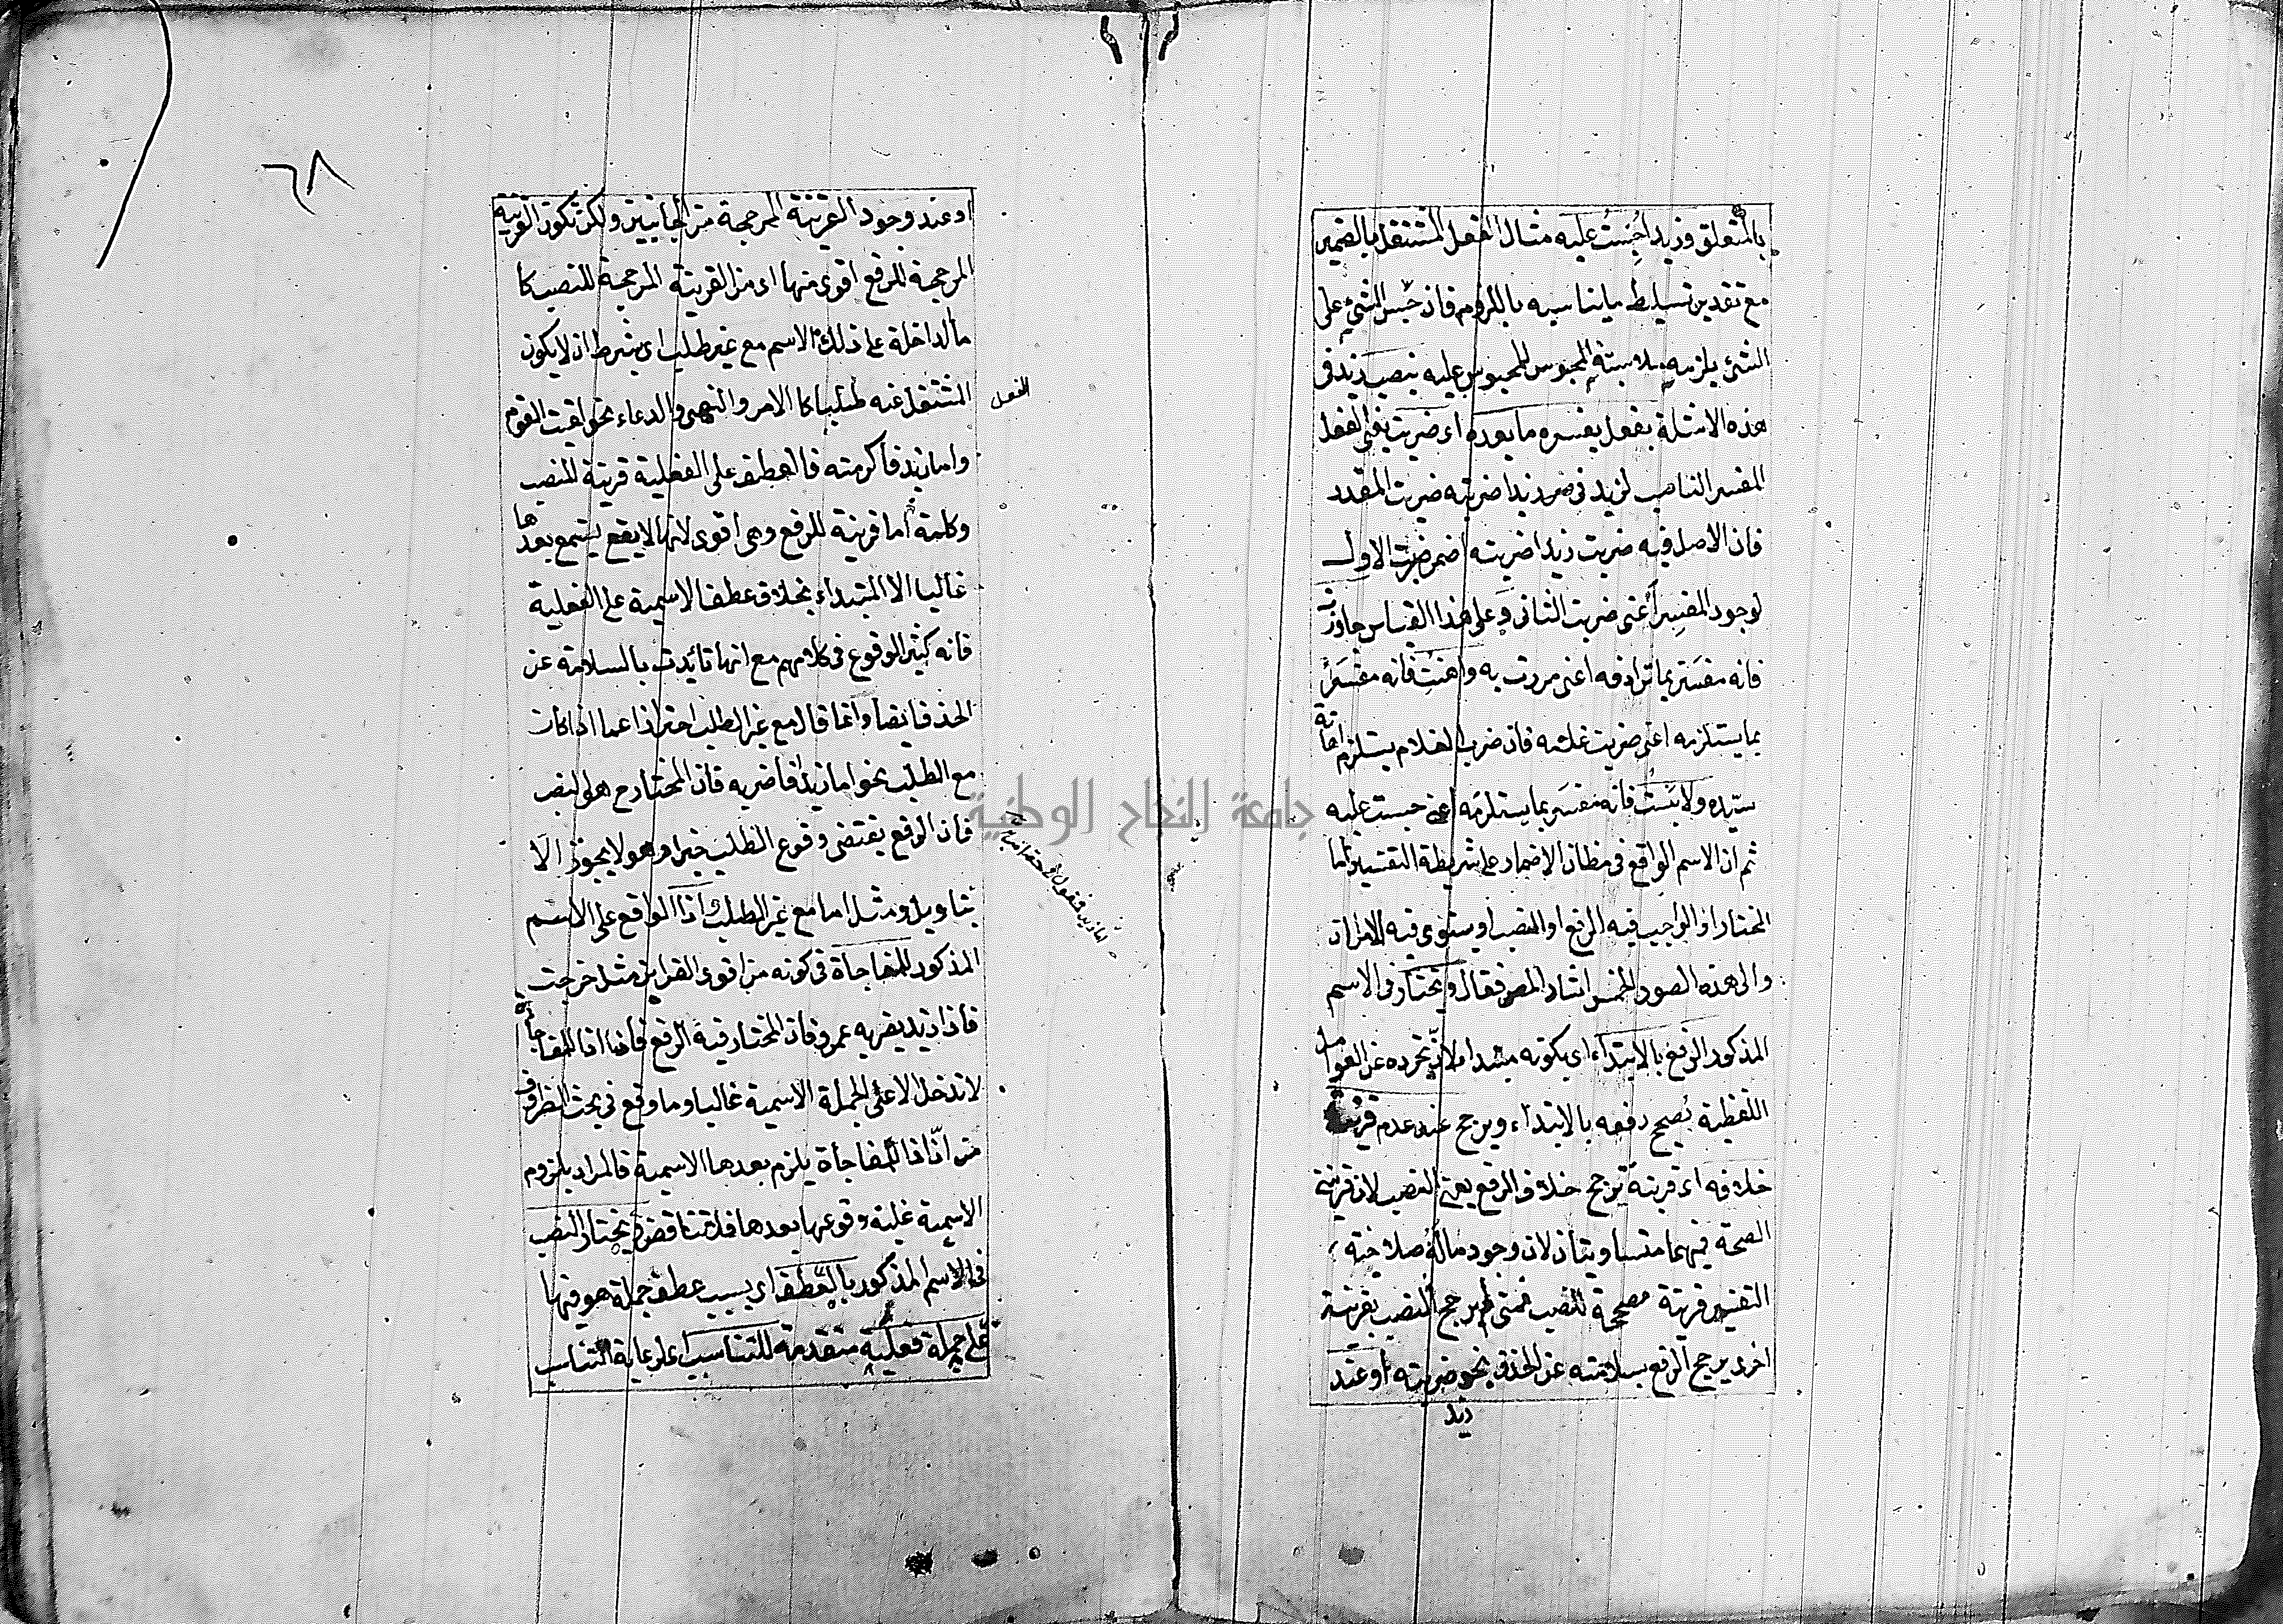 بالمتعلق وزيدا حُبِسْتُ عليه مثال الفعل المشتغل بالضمير
مع تقدير تسليط ما يناسبه باللزوم فان حبس الشئ على
الشئ يلزمه ملابسة المحبوس للمحبوس عليه ينصب زيد في
هذه الامثلة بفعل يفسره ما بعده اى ضربت يعنى الفعل
المفسر الناصب لزيد في زيدا ضربته ضربت المقدر
فان الاصل فيه ضربت زيدا ضربته اضمر ضربت الاول
لوجود المفسر أعنى ضربت الثانى وعلى هذا القياس جاوزت
فانه مفسَّر بما ترادفه اعنى مررت به واهنت فانه مفسَّر
بما يستلزمه اعنى ضربت غلامه فان ضرب الغلام يستلزم اهانة
سيّده ولابَسْتُ فانه مفسَّر بما يستلزمه اعنى حبست عليه
ثم ان الاسم الواقع في مظان الاضمار على شريطة التفسير اما
المختار او الواجب فيه الرفع او النصب او يستوى فيه الامران
والى هذه الصور الخمس اشار المص فقال ويختار في الاسم
المذكور الرفع بالابتداء اى بكونه مبتدا لانّ تجرده عن العوامل
اللفظية يصحح رفعه بالابتداء ويرجح عند عدم قرينة
خلافه اى قرينة ترجح خلاف الرفع يعنى النصب لان قرينتى
الصحة فيهما متساويتان لان وجود ماله صلاحية
التفسير قرينة مصححة للنصب فمتى لم يرجح النصب بقرينة
اخرى يرجح الرفع بسلامته عن الحذف نحو ضربته او عند
زيد
او عند وجود القرينة المرجحة من الجانبين ولكن تكون القرينة
المرجحة للرفع اقوى منها اى من القرينة المرجحة للنصب كا
ما الداخلة على ذلك الاسم مع غير طلب اى بشرط ان لا يكون
المشتغل عنه طلبيا كا الامر والنهى والدعاء نحو لقيت القوم
الفعل
واما زيد فأكرمته فالعطف على الفعلية قرينة للنصب
وكلمة أما قرينة للرفع وهى أقوى لانها لا يقع بعدها
غالبا الا المبتداء بخلاف عطف الاسمية على الفعلية
فانه كثير الوقوع في كلامهم مع انها تائدت بالسلامة عن
الحذف ايضا وانما قال مع غير الطلب احترازا عما اذا كانت
مع الطلب نحو اما زيدا فاضربه فان المختار ح هو النصب
فان الرفع يقتضى وقوع الطلب خبرا وهو لا يجوز الا
بتاويل ومثل اما مع غير الطلب اذا الواقع على الاسم
المذكور للمفاجاة في كونه من اقوى القراين مثل خرجت
فاذا زيد يضربه عمرو فان المختار فيه الرفع فان اذا للمفاجأة
لا تدخل الا على الجملة الاسمية غالبا وما وقع في بحث الظروف
من انّ اذا للمفاجأة يلزم بعدها الاسمية فالمراد بلزوم
الاسمية غلبة وقوعها بعدها فلا تناقض ويختار النصب
في الاسم المذكور بالعطف اى بسبب عطف جملة هو فيها
على جملة فعلية متقدمة للتناسب اى لرعاية التناسب
٦٨
جامعة النجاح الوطنية